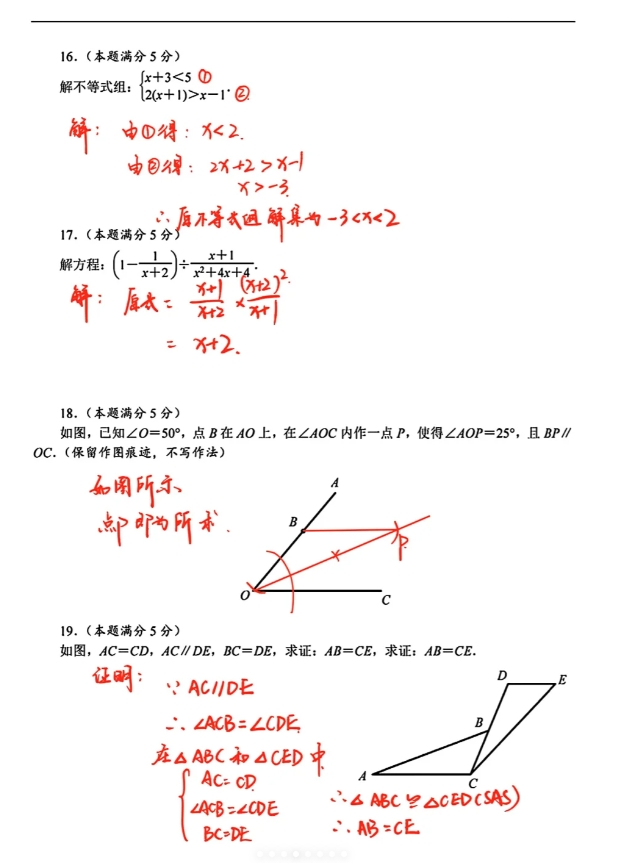 16.（本题满分 5 分）
解不等式组：{x+3<5 ①
2(x+1)>x-1. ②
解：由①得：x<2.
由②得：2x+2>x-1
x>-3.
∴原不等式组解集为-3<x<2
17.（本题满分 5 分）
解方程：(1-1/(x+2))÷(x+1)/(x²+4x+4).
解：原式= (x+1)/(x+2) × (x+2)²/(x+1)
= x+2.
18.（本题满分 5 分）
如图，已知∠O=50°，点 B 在 AO 上，在∠AOC 内作一点 P，使得∠AOP=25°，且 BP∥
OC.（保留作图痕迹，不写作法）
如图所示
点P即为所求.
A
B
P
O
C
19.（本题满分 5 分）
如图，AC=CD，AC∥DE，BC=DE，求证：AB=CE，求证：AB=CE.
证明：∵AC//DE
∴∠ACB=∠CDE
在△ABC和△CED中
{AC=CD
∠ACB=∠CDE
BC=DE
∴△ABC≌△CED(SAS)
∴AB=CE
D
E
B
A
C